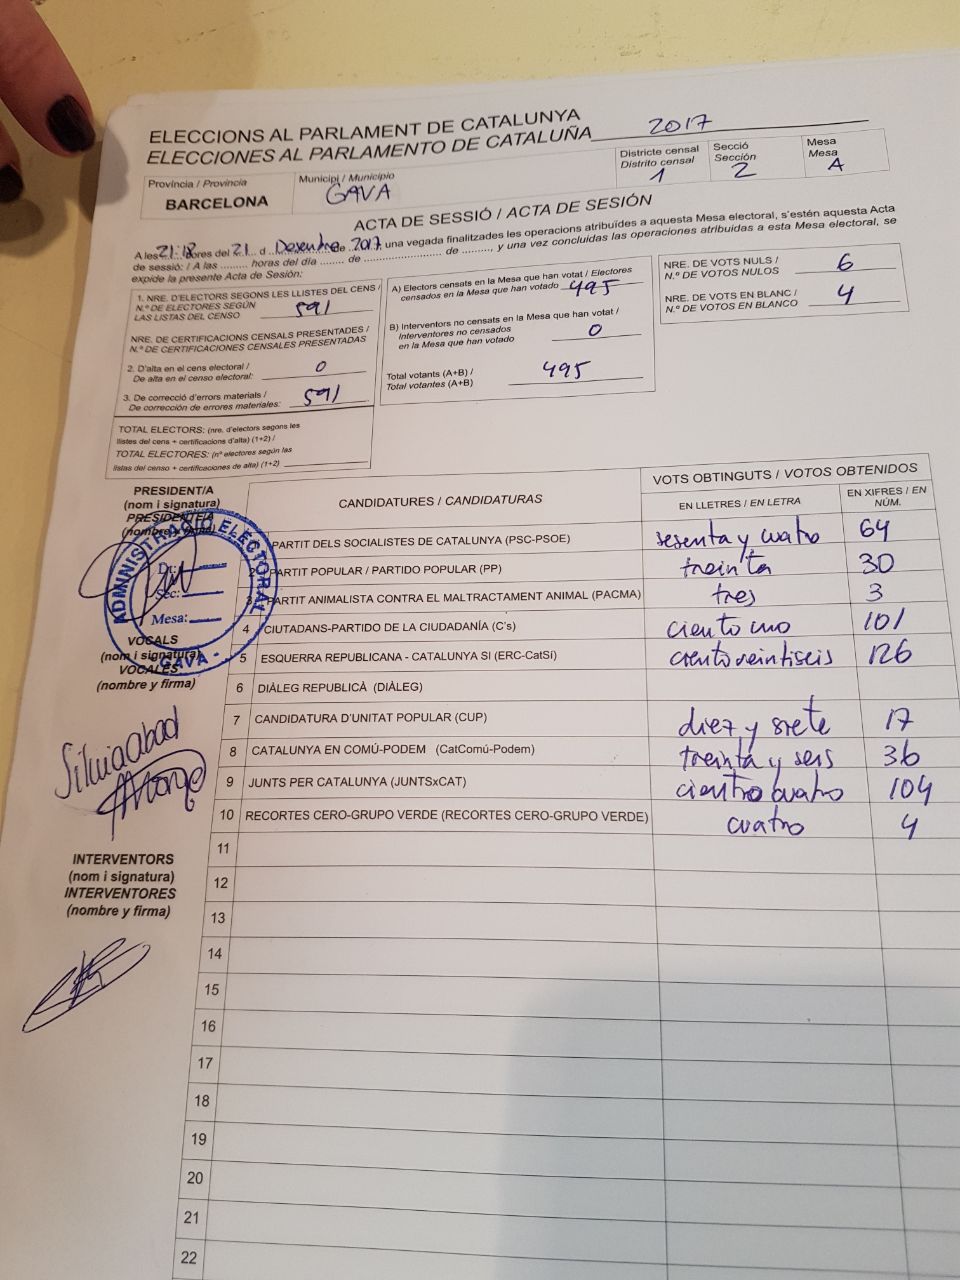 ELECCIONS AL PARLAMENT DE CATALUNYA
ELECCIONES AL PARLAMENTO DE CATALUÑA 2017
Província / Provincia
BARCELONA
Municipi / Municipio
GAVA
Districte censal
Distrito censal
1
Secció
Sección
2
Mesa
Mesa
A
ACTA DE SESSIÓ / ACTA DE SESIÓN
A les 21:18 hores del 21 d Desembre de 2017, una vegada finalitzades les operacions atribuïdes a aquesta Mesa electoral, s'estén aquesta Acta
de sessió: / A las ......... horas del día ........ de ........................ de .........., y una vez concluidas las operaciones atribuidas a esta Mesa electoral, se
expide la presente Acta de Sesión:
1. NRE. D'ELECTORS SEGONS LES LLISTES DEL CENS /
N.º DE ELECTORES SEGÚN
LAS LISTAS DEL CENSO 591
NRE. DE CERTIFICACIONS CENSALS PRESENTADES /
N.º DE CERTIFICACIONES CENSALES PRESENTADAS
2. D'alta en el cens electoral /
De alta en el censo electoral: 0
3. De correcció d'errors materials /
De corrección de errores materiales: 591
TOTAL ELECTORS: (nre. d'electors segons les
llistes del cens + certificacions d'alta) (1+2) /
TOTAL ELECTORES: (nº electores según las
listas del censo + certificaciones de alta) (1+2)
A) Electors censats en la Mesa que han votat / Electores
censados en la Mesa que han votado 495
B) Interventors no censats en la Mesa que han votat /
Interventores no censados
en la Mesa que han votado 0
Total votants (A+B) /
Total votantes (A+B) 495
NRE. DE VOTS NULS /
N.º DE VOTOS NULOS 6
NRE. DE VOTS EN BLANC /
N.º DE VOTOS EN BLANCO 4
PRESIDENT/A
(nom i signatura)
PRESIDENTE/A
(nombre y firma)
ADMINISTRACIÓ ELECTORAL
Dt.:
Sec.:
Mesa:
- GAVA -
VOCALS
(nom i signatura)
VOCALES
(nombre y firma)
Silvia Abad
INTERVENTORS
(nom i signatura)
INTERVENTORES
(nombre y firma)
CANDIDATURES / CANDIDATURAS
VOTS OBTINGUTS / VOTOS OBTENIDOS
EN LLETRES / EN LETRA
EN XIFRES / EN NÚM.
PARTIT DELS SOCIALISTES DE CATALUNYA (PSC-PSOE) sesenta y cuatro 64
2 PARTIT POPULAR / PARTIDO POPULAR (PP) treinta 30
3 PARTIT ANIMALISTA CONTRA EL MALTRACTAMENT ANIMAL (PACMA) tres 3
4 CIUTADANS-PARTIDO DE LA CIUDADANÍA (C's) ciento uno 101
5 ESQUERRA REPUBLICANA - CATALUNYA SI (ERC-CatSí) ciento veintiseis 126
6 DIÀLEG REPUBLICÀ (DIÀLEG)
7 CANDIDATURA D'UNITAT POPULAR (CUP) diez y siete 17
8 CATALUNYA EN COMÚ-PODEM (CatComú-Podem) treinta y seis 36
9 JUNTS PER CATALUNYA (JUNTSxCAT) cientro cuatro 104
10 RECORTES CERO-GRUPO VERDE (RECORTES CERO-GRUPO VERDE) cuatro 4
11
12
13
14
15
16
17
18
19
20
21
22